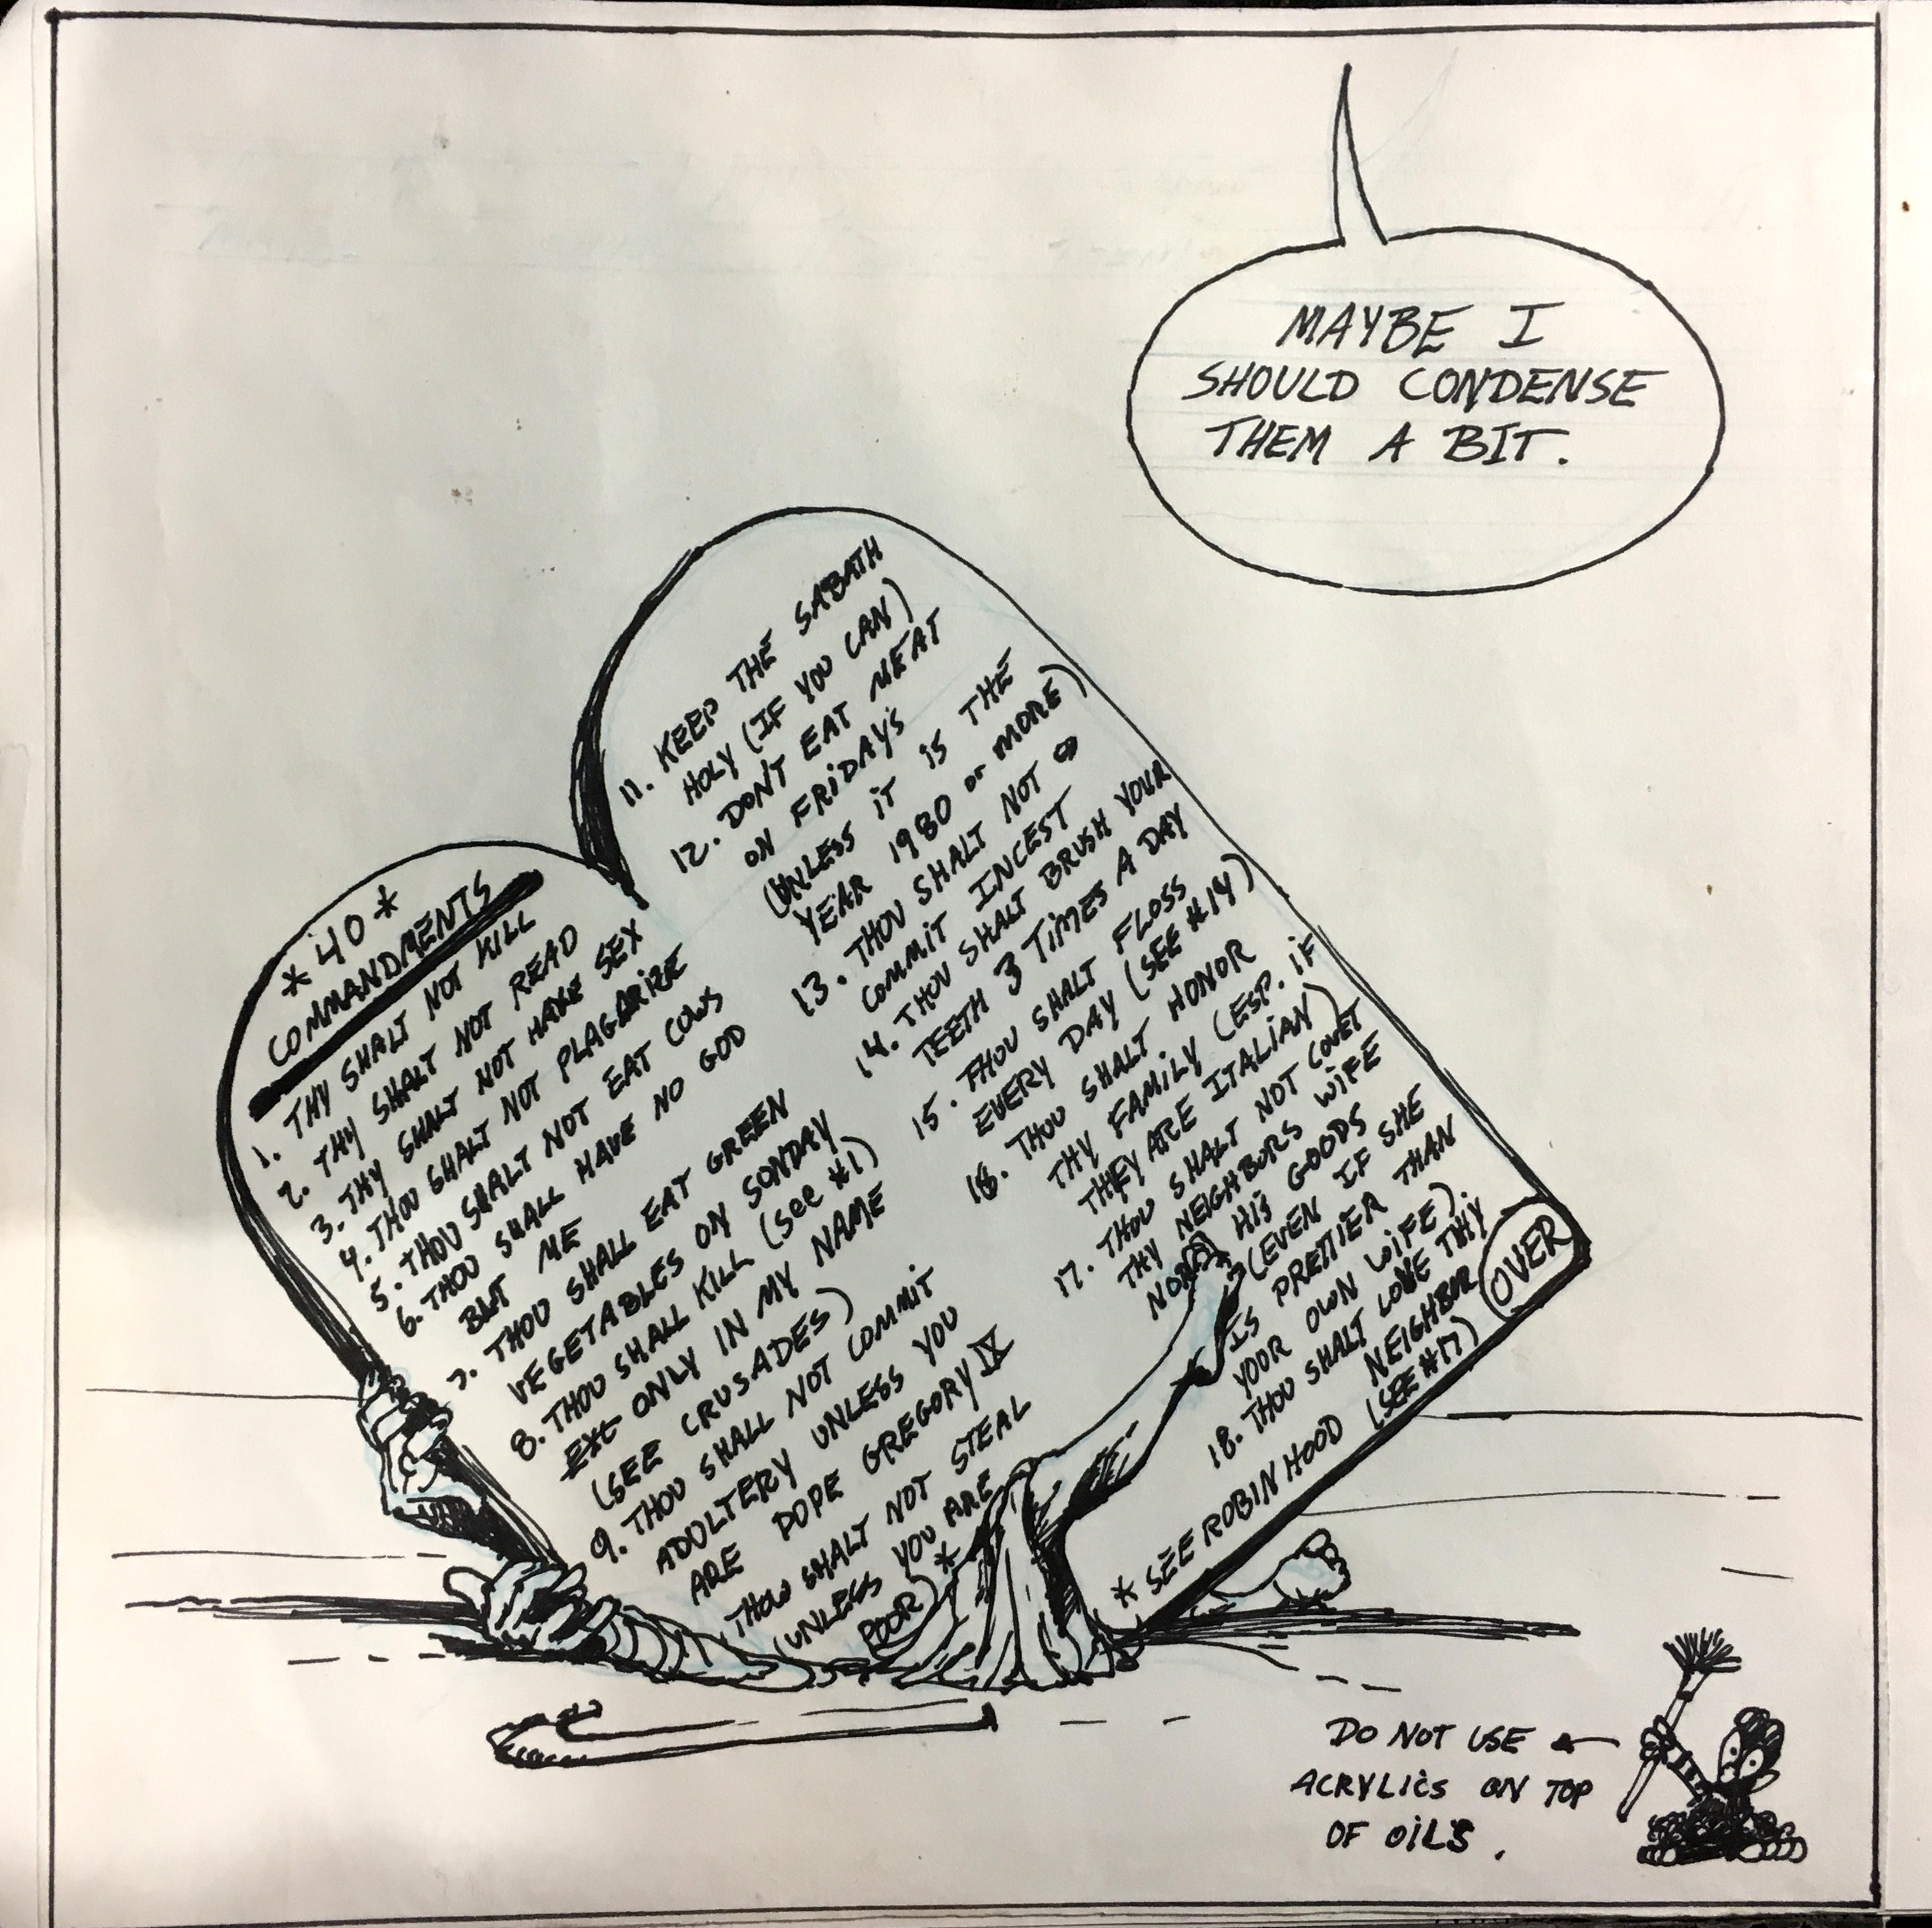 MAYBE I
SHOULD CONDENSE
THEM A BIT.
* 40 *
COMMANDMENTS
1. THY SHALT NOT KILL
2. THY SHALT NOT READ
3. THY SHALT NOT HAVE SEX
4. THOU SHALT NOT PLAGARIZE
5. THOU SHALT NOT EAT COWS
6. THOU SHALL HAVE NO GOD
BUT ME
7. THOU SHALL EAT GREEN
VEGETABLES ON SONDAY
8. THOU SHALL KILL (SEE #1)
EXC ONLY IN MY NAME
(SEE CRUSADES)
9. THOU SHALL NOT COMMIT
ADULTERY UNLESS YOU
ARE POPE GREGORY IX
THOU SHALT NOT STEAL
(UNLESS YOU ARE
POOR) *
11. KEEP THE SABATH
HOLY (IF YOU CAN)
12. DON'T EAT MEAT
ON FRIDAY'S
(UNLESS IT IS THE
YEAR 1980 or MORE)
13. THOU SHALT NOT
COMMIT INCEST
14. THOU SHALT BRUSH YOUR
TEETH 3 TIMES A DAY
15. THOU SHALT FLOSS
EVERY DAY (SEE #14)
16. THOU SHALT HONOR
THY FAMILY (ESP. IF
THEY ARE ITALIAN)
17. THOU SHALT NOT COVET
THY NEIGHBORS WIFE
NOR HIS GOODS
(EVEN IF SHE
IS PRETTIER THAN
YOOR OWN WIFE).
18. THOU SHALT LOVE THY
NEIGHBOR
(SEE #17)
* SEE ROBIN HOOD
OVER
DO NOT USE
ACRYLICS ON TOP
OF OILS.